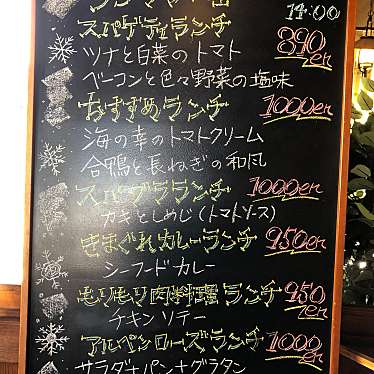 14:00
スパゲティランチ 890en
ツナと白菜のトマト
ベーコンと色々野菜の塩味
おすすめランチ 1000en
海の幸のトマトクリーム
合鴨と長ねぎの和風
スパグラランチ 1000en
カキとしめじ(トマトソース)
きまぐれカレーランチ 950en
シーフードカレー
もりもり肉料理ランチ 950en
チキンソテー
アルペンローズランチ 1000en
サラダ+パン+グラタン